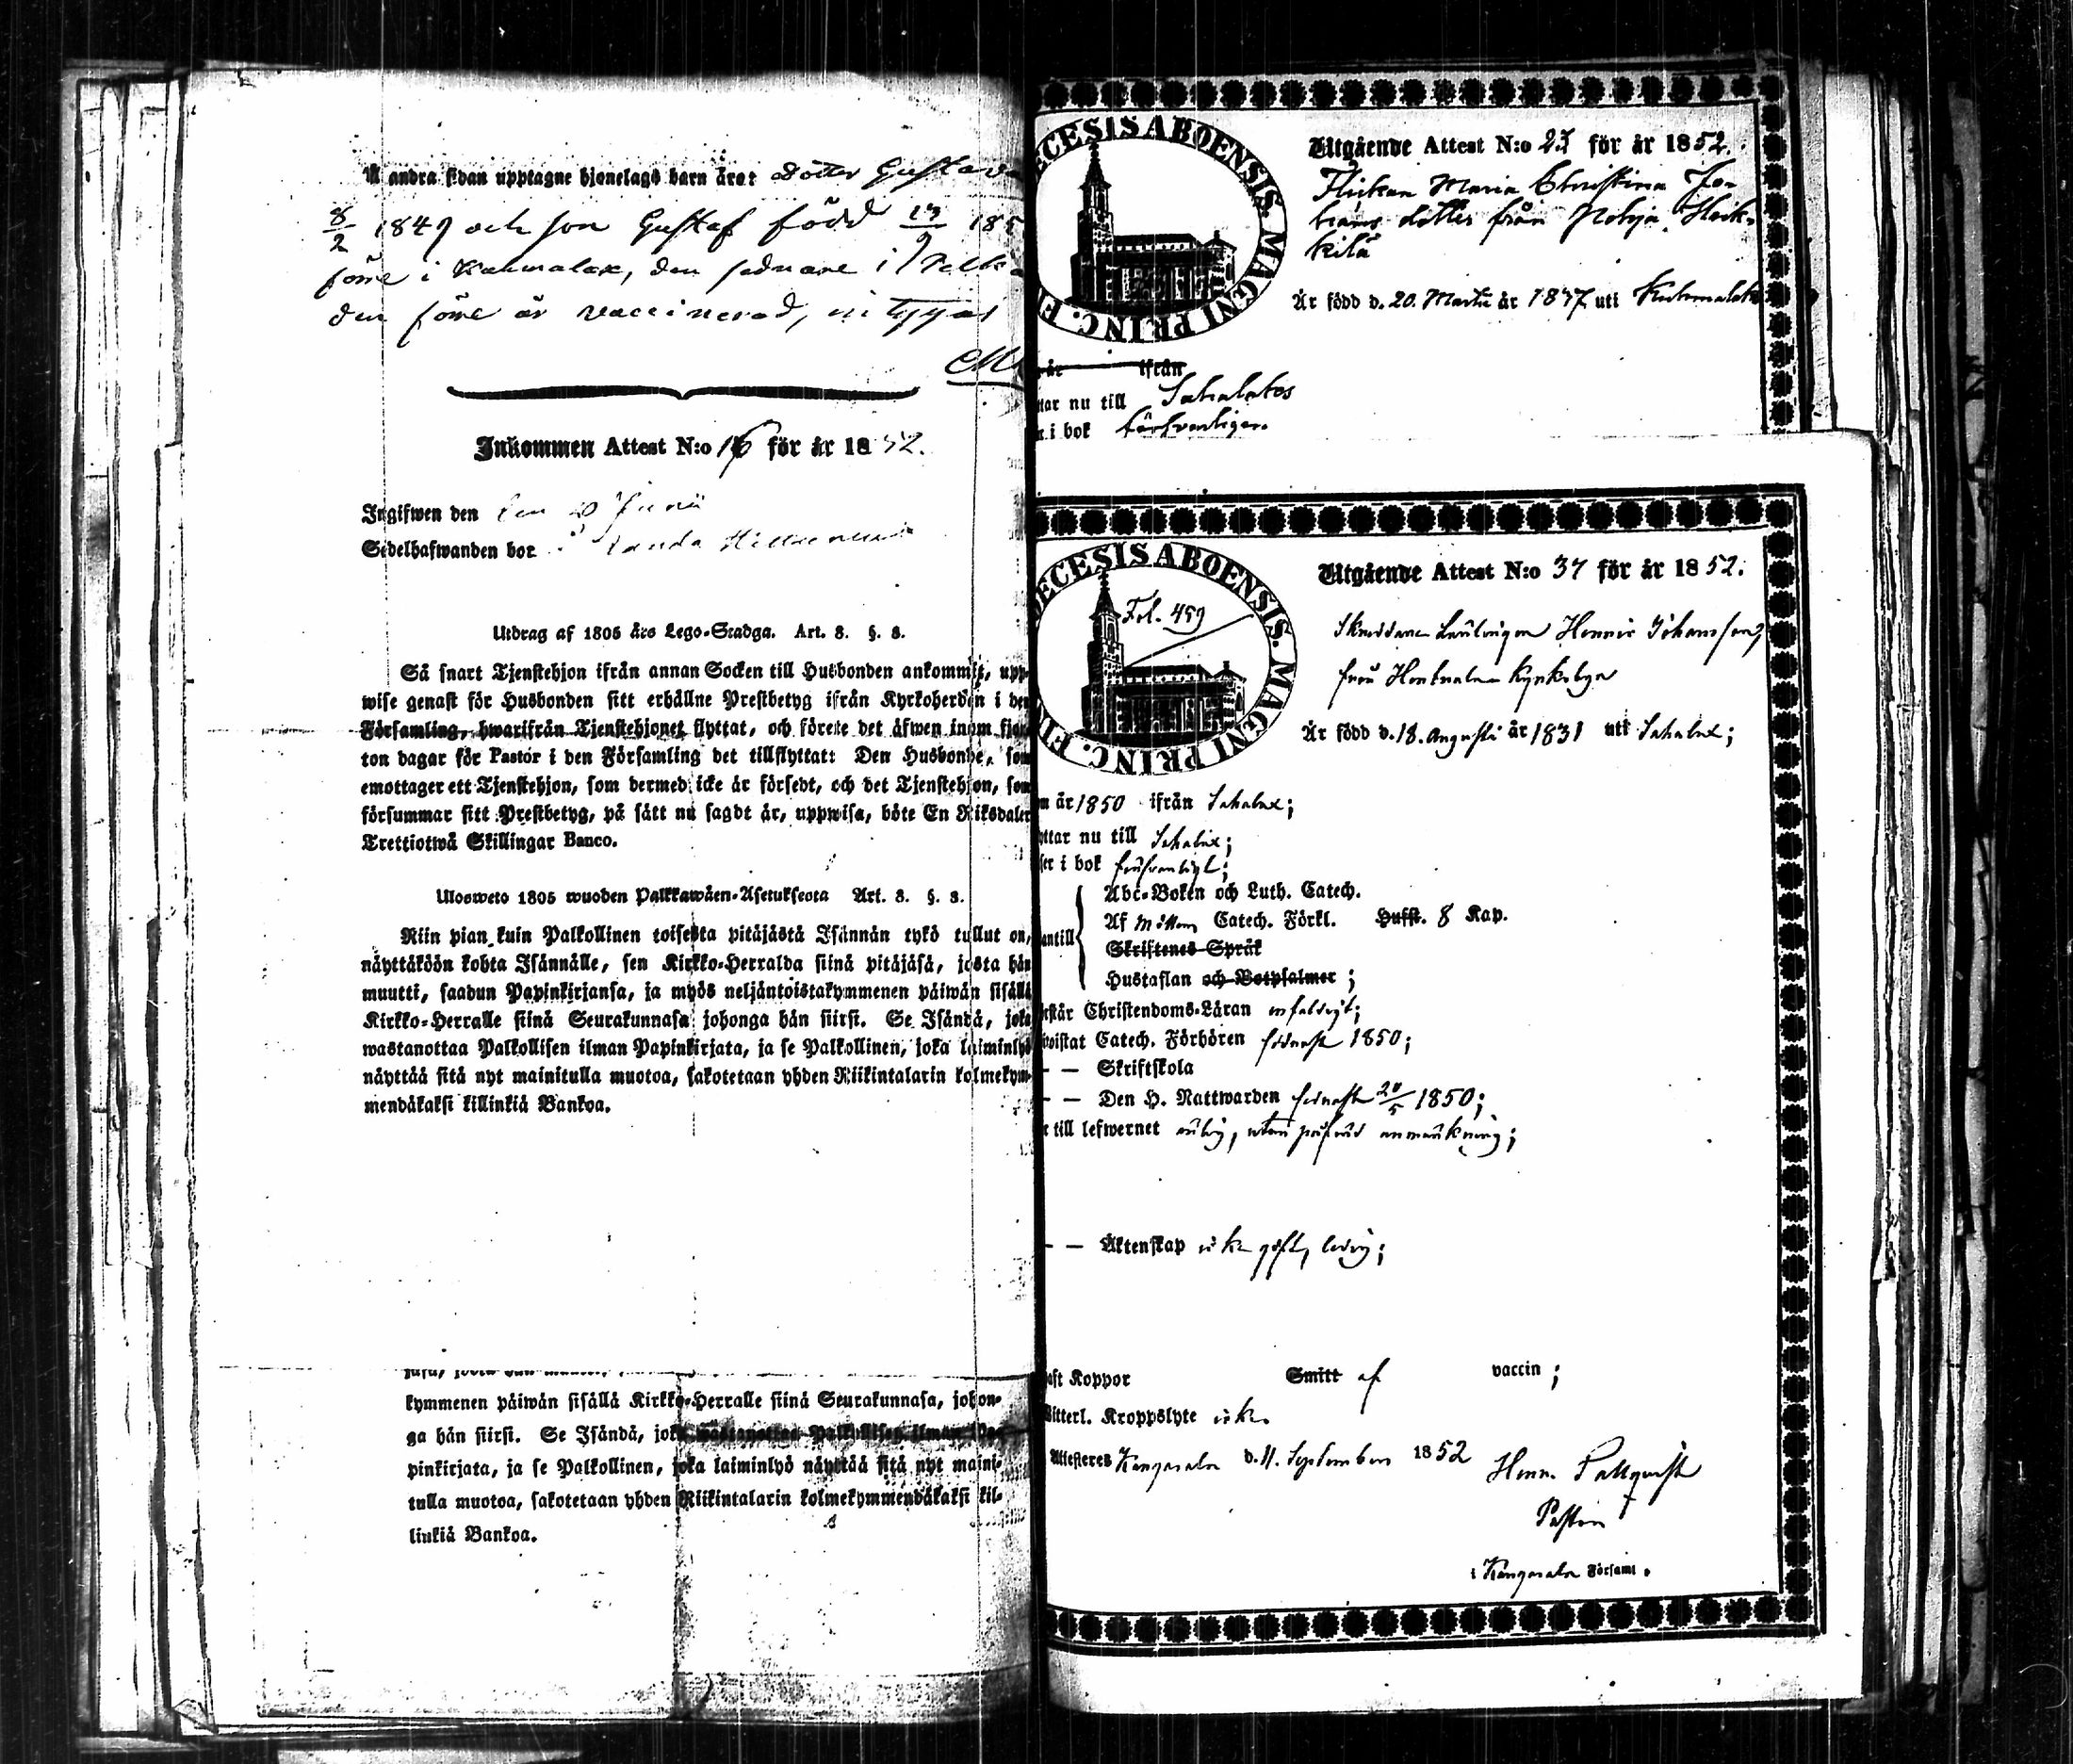 å andra sidan upptagne hjonelags barn äro: dotter Gustava
8/2 1849 och son Gustaf född 185
förre i den sednare i
den förre är vaccinerad, intygas
Inkommen Attest N:o 16 för år 1852.
Ingifwen den Junii
Sedelhafwanden bor i
Utdrag af 1805 års Lego-Stadga. Art. 8. §. 8.
Så snart Tjenstehjon ifrån annan Socken till Husbonden ankommit, upp-
wise genast för Husbonden sitt erhållne Prestbetyg ifrån Kyrkoherden i den
Församling, hwarifrån Tjenstehjonet flyttat, och förete det äfwen inom fjor-
ton dagar för Pastor i den Församling det tillflyttat: Den Husbonde, som
emottager ett Tjenstehjon, som dermed icke är försedt, och det Tjenstehjon, som
försummar sitt Prestbetyg, på sätt nu sagdt är, uppwisa, böte En Riksdaler
Trettiotwå Skillingar Banco.
Ulosweto 1805 wuoden Palkkawäen-Asetuksesta Art. 8. §. 8.
Niin pian kuin Palkollinen toisesta pitäjästä Isännän tykö tullut on,
näyttäköön kohta Isännälle, sen Kirkko-Herralda siinä pitäjäsä, josta hän
muutti, saadun Papinkirjansa, ja myös neljäntoistakymmenen päiwän sisällä
Kirkko-Herralle siinä Seurakunnasa johonga hän siirsi. Se Isändä, joka
wastanottaa Palkollisen ilman Papinkirjata, ja se Palkollinen, joka laiminlyö
näyttää sitä nyt mainitulla muotoa, sakotetaan yhden Riikintalarin kolmekym-
mendäkaksi killinkiä Bankoa.
kymmenen päiwän sisällä Kirkko-Herralle siinä Seurakunnasa, johon-
ga hän siirsi. Se Isändä, joka wastanottaa Palkollisen ilman Pa-
pinkirjata, ja se Palkollinen, joka laiminlyö näyttää sitä nyt maini-
tulla muotoa, sakotetaan yhden Riikintalarin kolmekymmendäkaksi kil-
linkiä Bankoa.
ECESIS ABOENSIS. MAGNI PRINC. F
Utgående Attest N:o 23 för år 1852.
Flickan Maria Christina Jo-
hans dotter från
kilä
Är född d. 20. Martii år 1837 uti Kuhmalaks
år ifrån
ttar nu till Sahalaks
r i bok försvarligen.
ECESIS ABOENSIS. MAGNI PRINC. FI
Fol. 459
Utgående Attest N:o 37 för år 1852.
Skräddare Lärlingen Henric Johansson,
från Kyrkoby
Är född d. 18. Augusti år 1831 uti Sahalax;
m år 1850 ifrån Sahalax;
yttar nu till Sahalax;
ser i bok försvarligt;
Abc-Boken och Luth. Catech.
antill Af Catech. Förkl. Hufst. 8 Kap.
Skriftenes Språk
Hustaflan och Botpsalmer;
rstår Christendoms-Läran enfaldigt;
woistat Catech. Förhören sednast 1850;
— — Skriftskola
— — Den H. Nattwarden sednast 20/5 1850;
r till lefwernet ärlig, utan anmärkning;
— — Äktenskap icke gift, ledig;
aft Koppor Smitt af vaccin;
Witterl. Kroppslyte icke.
Attesteres Kangasala d. 11. September 1852
Henr. Pallquist
Pastor
i Kangasala Församl.